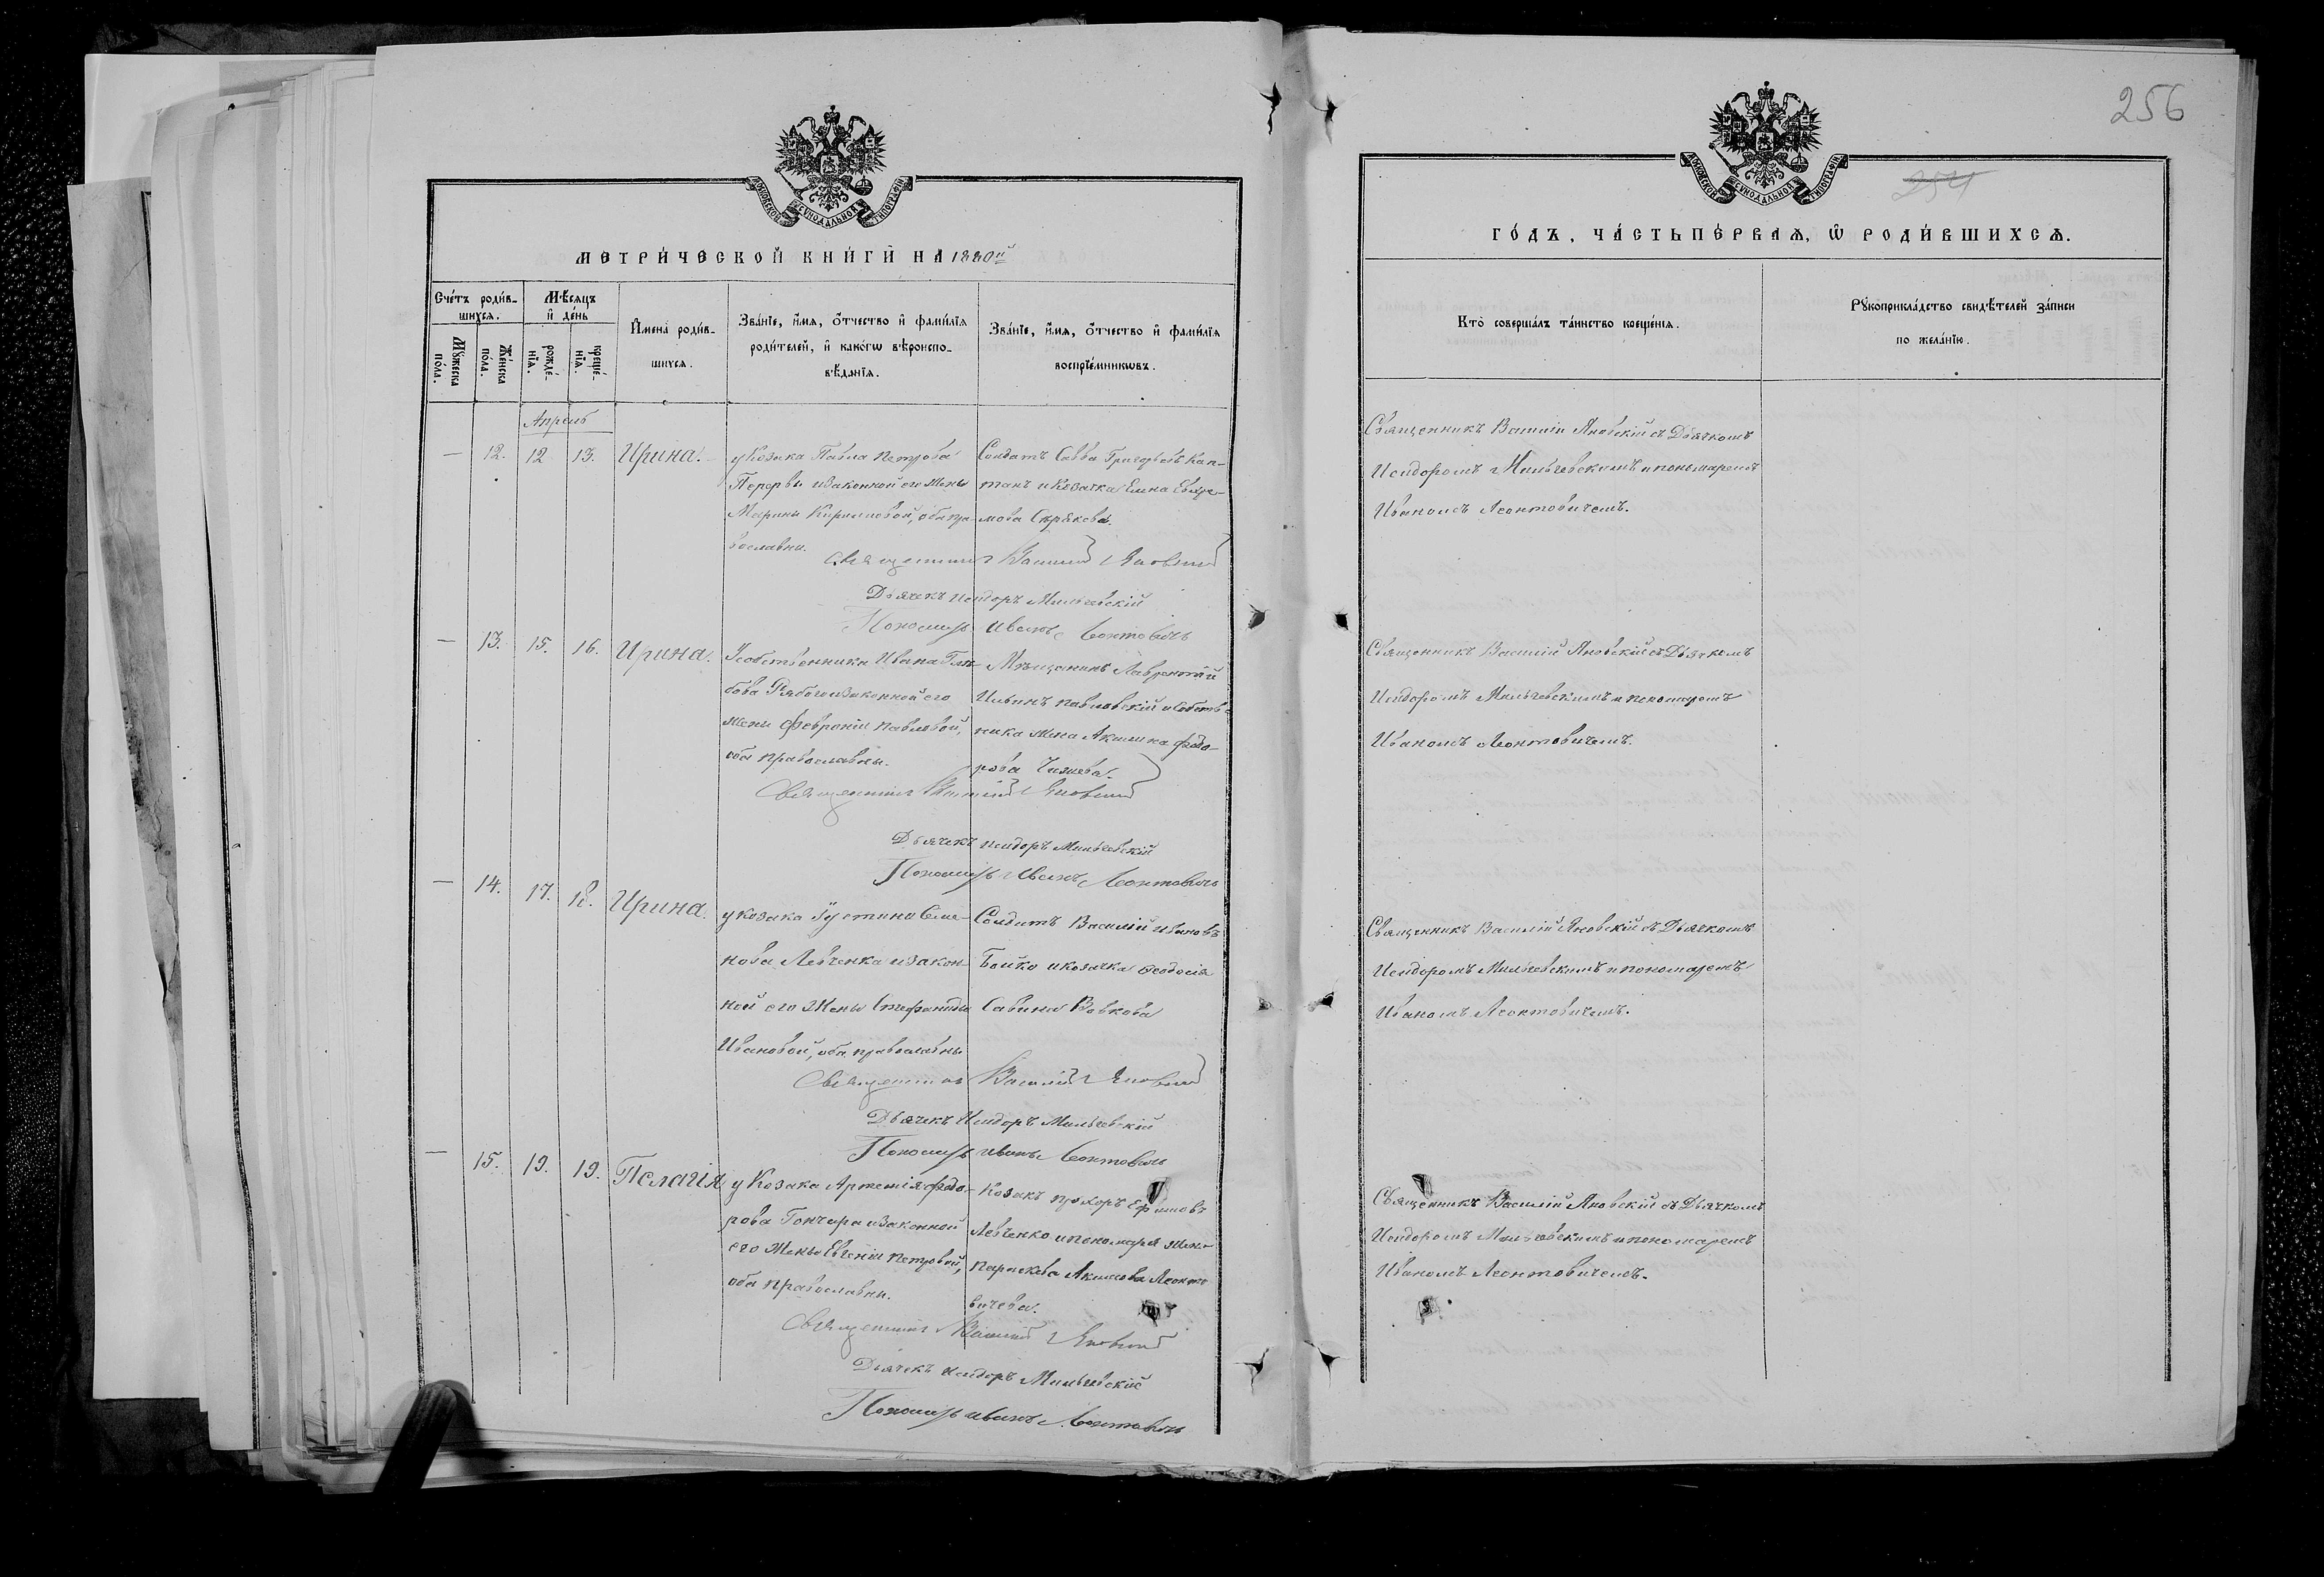 256
254
МОСКОВСКОЙ СѴНОДАЛЬНОЙ ТИПОГРАФІИ
МЕТРИ́ЧЕСКОЙ КНИ́ГИ НА 1880й
Сче́тъ роди́в-
шихсѧ.
Мѣ́сѧцъ
и҆ де́нь
Мꙋ́жеска
по́ла.
Же́нска
по́ла.
рожде́-
нїѧ.
креще́-
нїѧ.
И҆мена̀ роди́в-
шихсѧ.
Зва́нїе, и҆́мѧ, ѻ҆́тчество и҆ фами́лїѧ
роди́телей, и҆ како́гѡ вѣроиспо-
вѣ́данїѧ.
Зва́нїе, и҆́мѧ, ѻ҆́тчество и҆ фами́лїѧ
воспрїе́мникѡвъ.
Апрель
— 12. 12 13. Ирина.
у Козака Павла Петрова
Перервы и законной его жены
Марины Кириловой, оба пра-
вославны.
Солдатъ Савва Григорьевъ Кап-
танъ и Козачка Елена Евфре-
мова
Священникъ Василий Яновский
Дьячекъ Исидоръ Мильчевскій
Пономарь Иванъ Леонтовичъ
— 13. 15. 16. Ирина.
У собственника Ивана Глѣ-
бова Рябого и законной его
жены Февроніи Павловой,
оба православны.
Мѣщанинъ Лаврентій
Ильинъ Павловскій и собств-
ника жена Акилина Федо-
рова
Священникъ Василий Яновский
Дьячекъ Исидоръ Мильчевскій
Пономарь Иванъ Леонтовичъ
— 14. 17. 18. Ирина.
у козака Іустина Семе-
нова Левченка и закон-
ной его жены Стефаниды
Ивановой, оба православны
Солдатъ Василій Ивановъ
Бойко и козачка Феодосія
Савина Вовкова
Священникъ Василій Яновский
Дьячекъ Исидоръ Мильчевскій
Пономарь Иванъ Леонтовичъ
— 15. 19. 19. Пелагія
у Козака Артемія Федо-
рова Гончара и законной
его жены Евгеніи Петровой,
оба православны.
Козакъ Прохоръ Ефимовъ
Левченко и пономаря жена
Параскева Акимова Леонто
вичева.
Священникъ Василий Яновский
Дьячекъ Исидоръ Мильчевскій
Пономарь Иванъ Леонтовичъ
МОСКОВСКОЙ СѴНОДАЛЬНОЙ ТИПОГРАФІИ
ГО́ДЪ, ЧА́СТЬ ПЕ́РВАѦ, Ѡ҆ РОДИ́ВШИХСѦ.
Кто̀ соверша́лъ та́инство креще́нїѧ.
Рꙋкоприкла́дство свидѣ́телей за́писи
по жела́нїю.
Священникъ Василій Яновскій съ Дьячкомъ
Исидоромъ Мильчевскимъ и пономаремъ
Иваномъ Леонтовичемъ.
Священникъ Василій Яновскій съ Дьячкомъ
Исидоромъ Мильчевскимъ и пономаремъ
Иваномъ Леонтовичемъ.
Священникъ Василій Яновскій съ Дьячкомъ
Исидоромъ Мильчевскимъ и пономаремъ
Иваномъ Леонтовичемъ.
Священникъ Василій Яновскій съ Дьячкомъ
Исидоромъ Мильчевскимъ и пономаремъ
Иваномъ Леонтовичемъ.